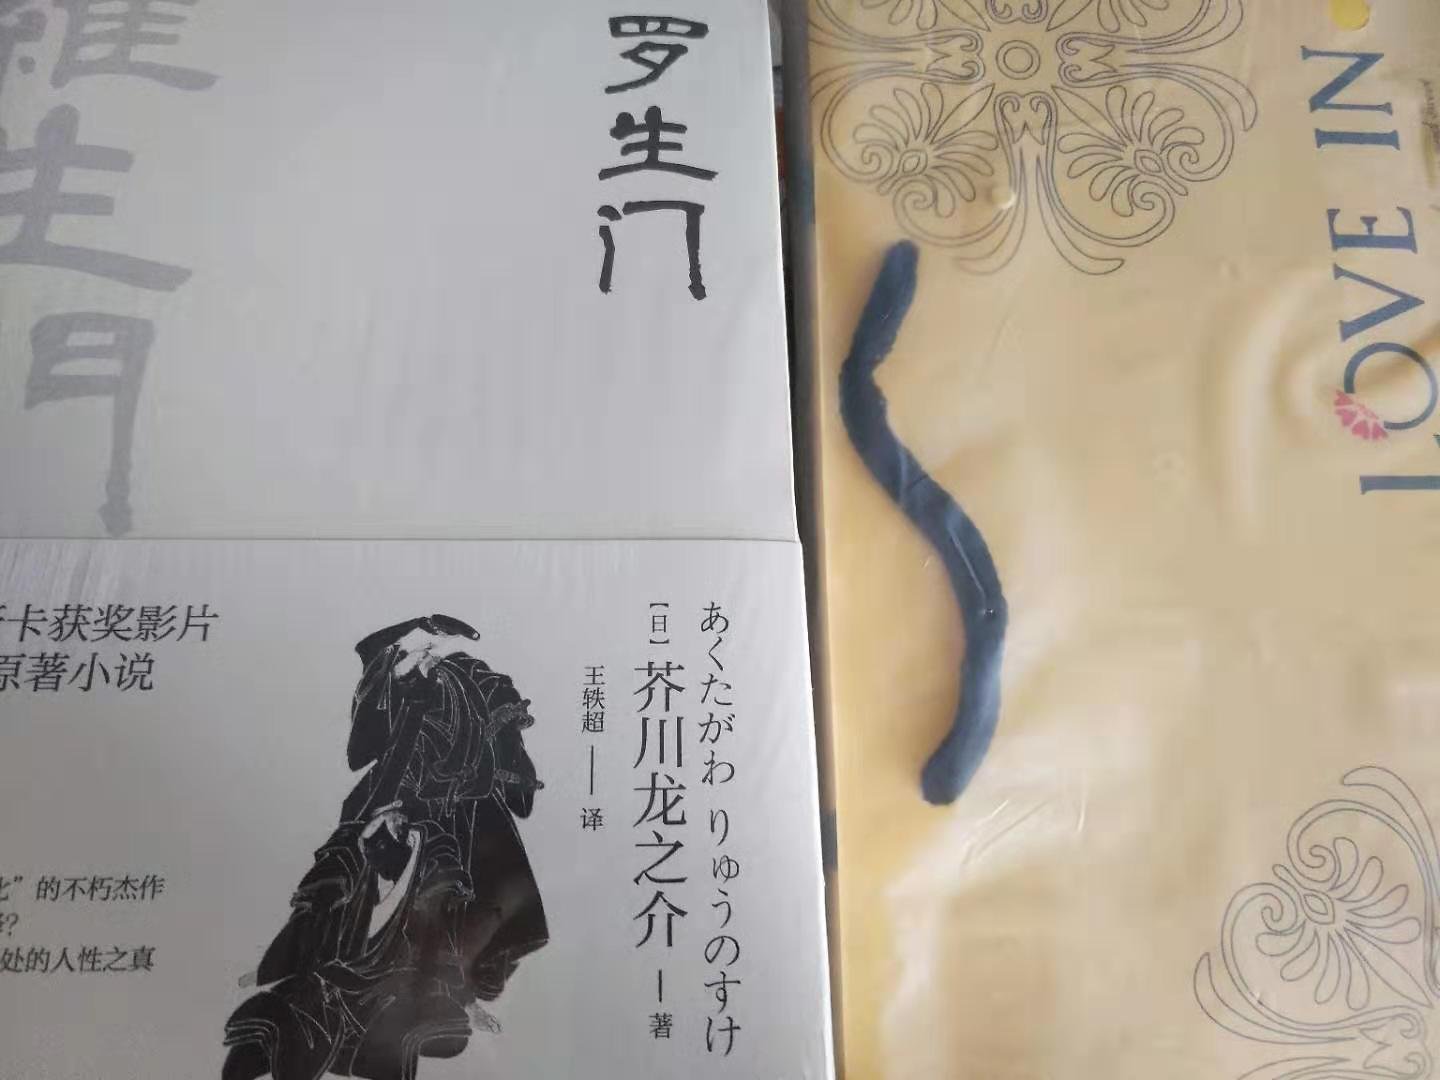 羅生門
罗生门
卡获奖影片
原著小说
あくたがわ りゅうのすけ
[日]芥川龙之介—著
王轶超——译
”的不朽杰作
处的人性之真
LOVE IN